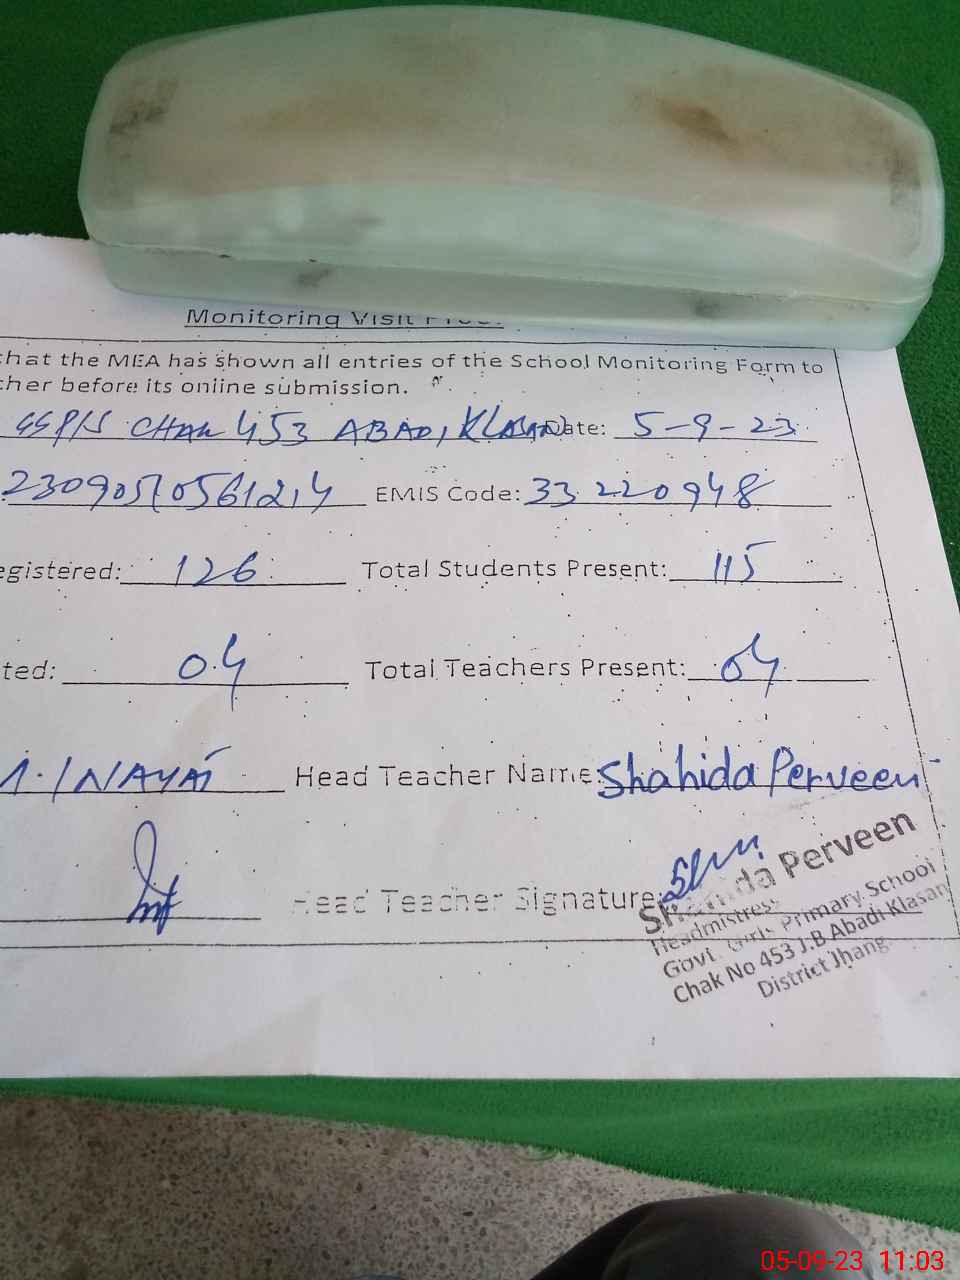 Monitoring Visit Proof
that the MEA has shown all entries of the School Monitoring Form to
cher before its online submission.
GGPS CHAK 453 ABADI KLASAN Date: 5-9-23
EMIS Code: 33220948
egistered: 126 Total Students Present: 115
ted: 04 Total Teachers Present: 04
M. INAYAT Head Teacher Name: Shahida Perveen
Head Teacher Signature:
Shahida Perveen
Headmistress
Govt. Girls Primary School
Chak No 453 J.B Abadi Klasan
District Jhang
05-09-23 11:03